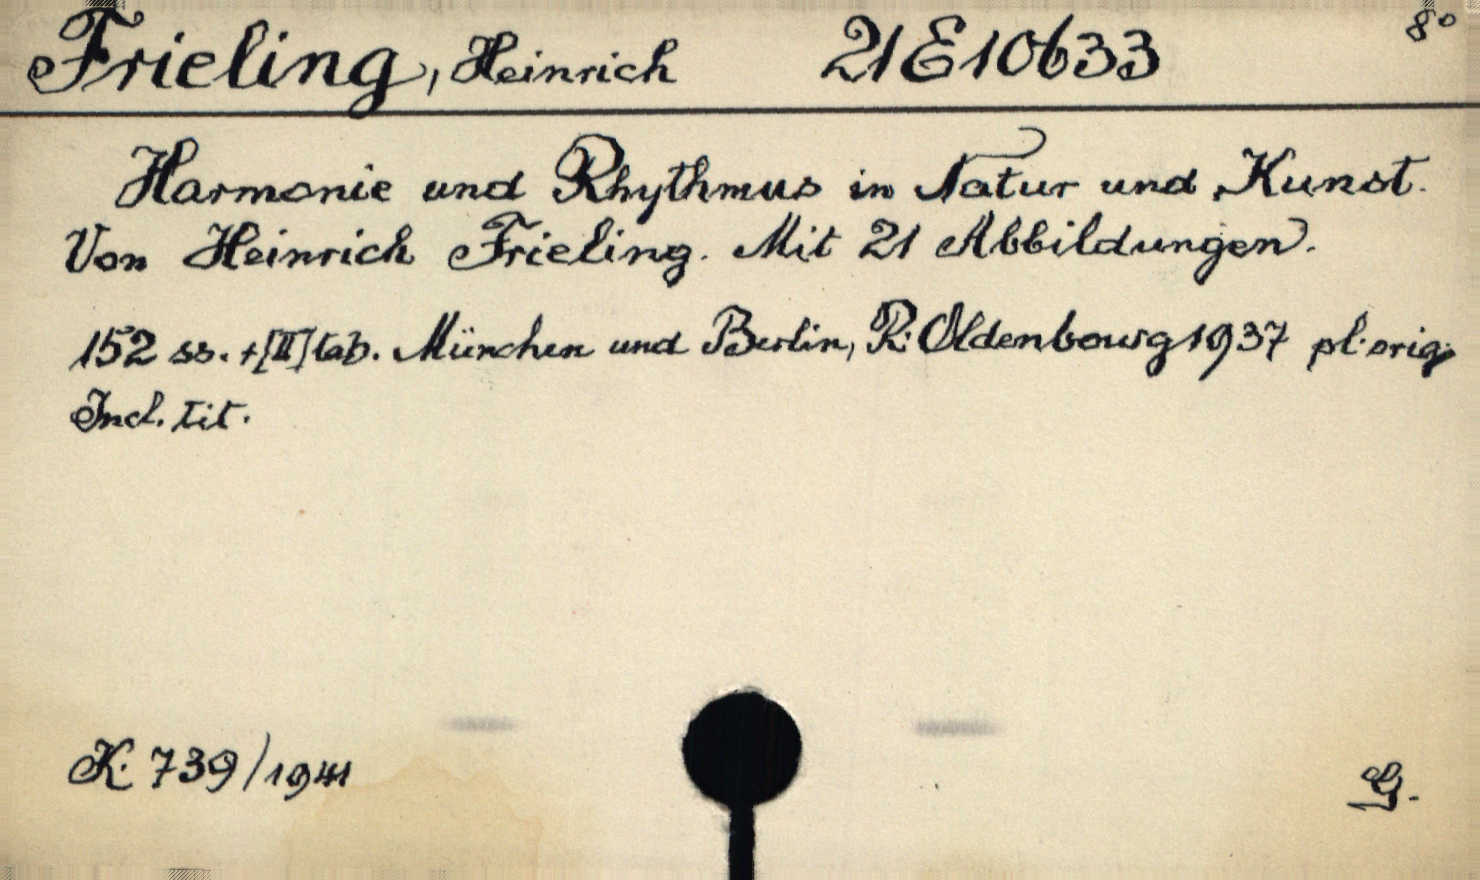 Frieling, Heinrich 21E10633 8°
Harmonie und Rhythmus in Natur und Kunst.
Von Heinrich Frieling. Mit 21 Abbildungen.
152 ss. +[II] tab. München und Berlin, R. Oldenbourg 1937 pl. orig.
Incl. tit.
K. 739/1941
G.